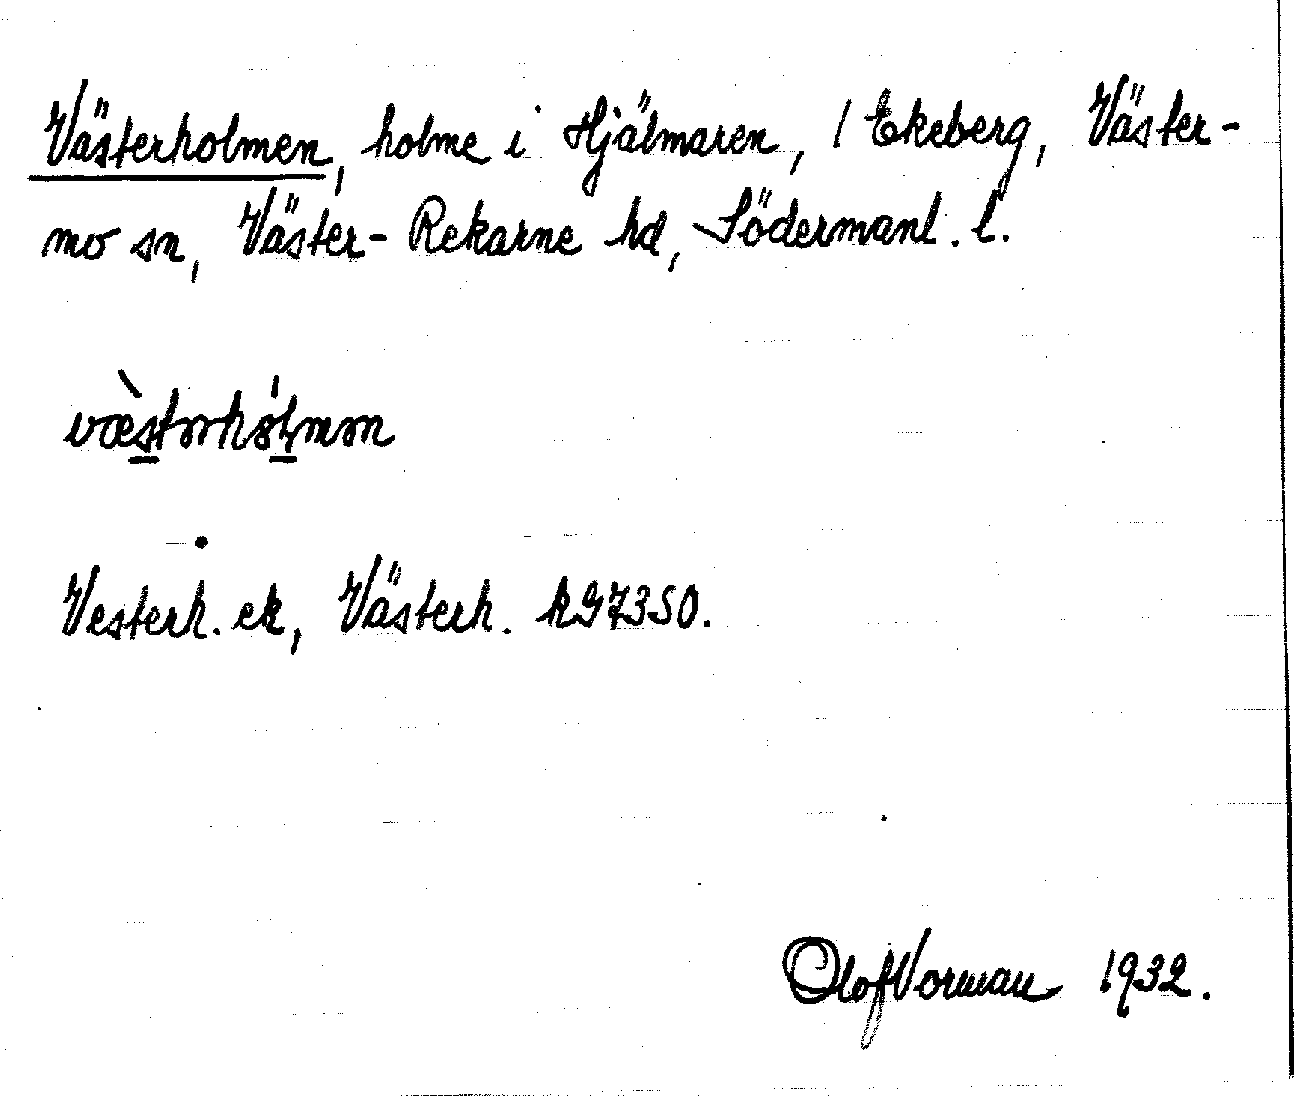 Västerholmen, holme i Hjälmaren, / Ekeberg, Väster-
mo sn, Väster-Rekarne hd, Södermanl. l.
Vesterh. ek, Västerh. kG7350.
Olof Vorman 1932.